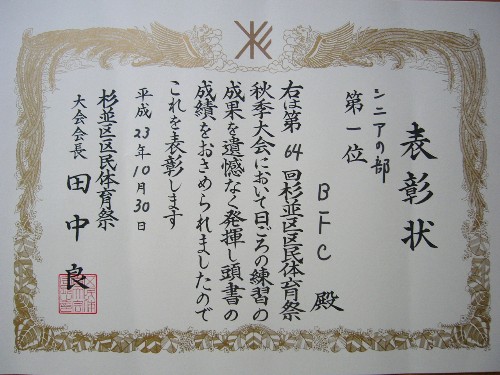 表彰状
シニアの部
第一位
BFC 殿
右は第64回杉並区区民体育祭
秋季大会において日ごろの練習の
成果を遺憾なく発揮し頭書の
成績をおさめられましたので
これを表彰します
平成23年10月30日
杉並区区民体育祭
大会会長 田中良